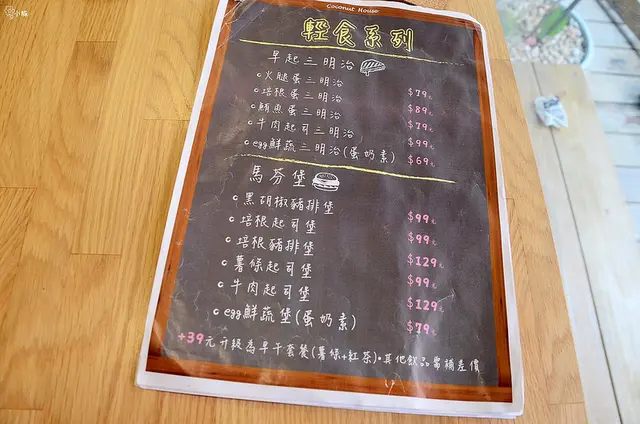 小妞
Coconut House
輕食系列
早起三明治
火腿蛋三明治 $79元
培根蛋三明治 $89元
鮪魚蛋三明治 $79元
牛肉起司三明治 $99元
egg鮮蔬三明治(蛋奶素) $69元
馬芬堡
黑胡椒豬排堡 $99元
培根起司堡 $99元
培根豬排堡 $129元
薯條起司堡 $99元
牛肉起司堡 $129元
egg鮮蔬堡(蛋奶素) $79元
+39元升級為早午套餐(薯條+紅茶)•其他飲品需補差價